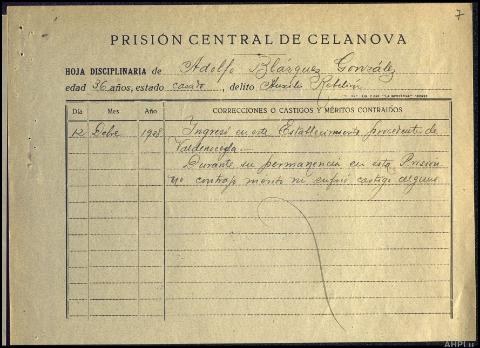 7
PRISIÓN CENTRAL DE CELANOVA
HOJA DISCIPLINARIA de Adolfo Blázquez González
edad 36 años, estado casado, delito Auxilio Rebelión
CORRECCIONES O CASTIGOS Y MÉRITOS CONTRAIDOS
Día Mes Año
12 Dcbre 1938 Ingresó en este Establecimiento procedente de
Valdenoceda.
Durante su permanencia en esta Prision
no contrajo mérito ni sufrió castigo alguno
AHPLu